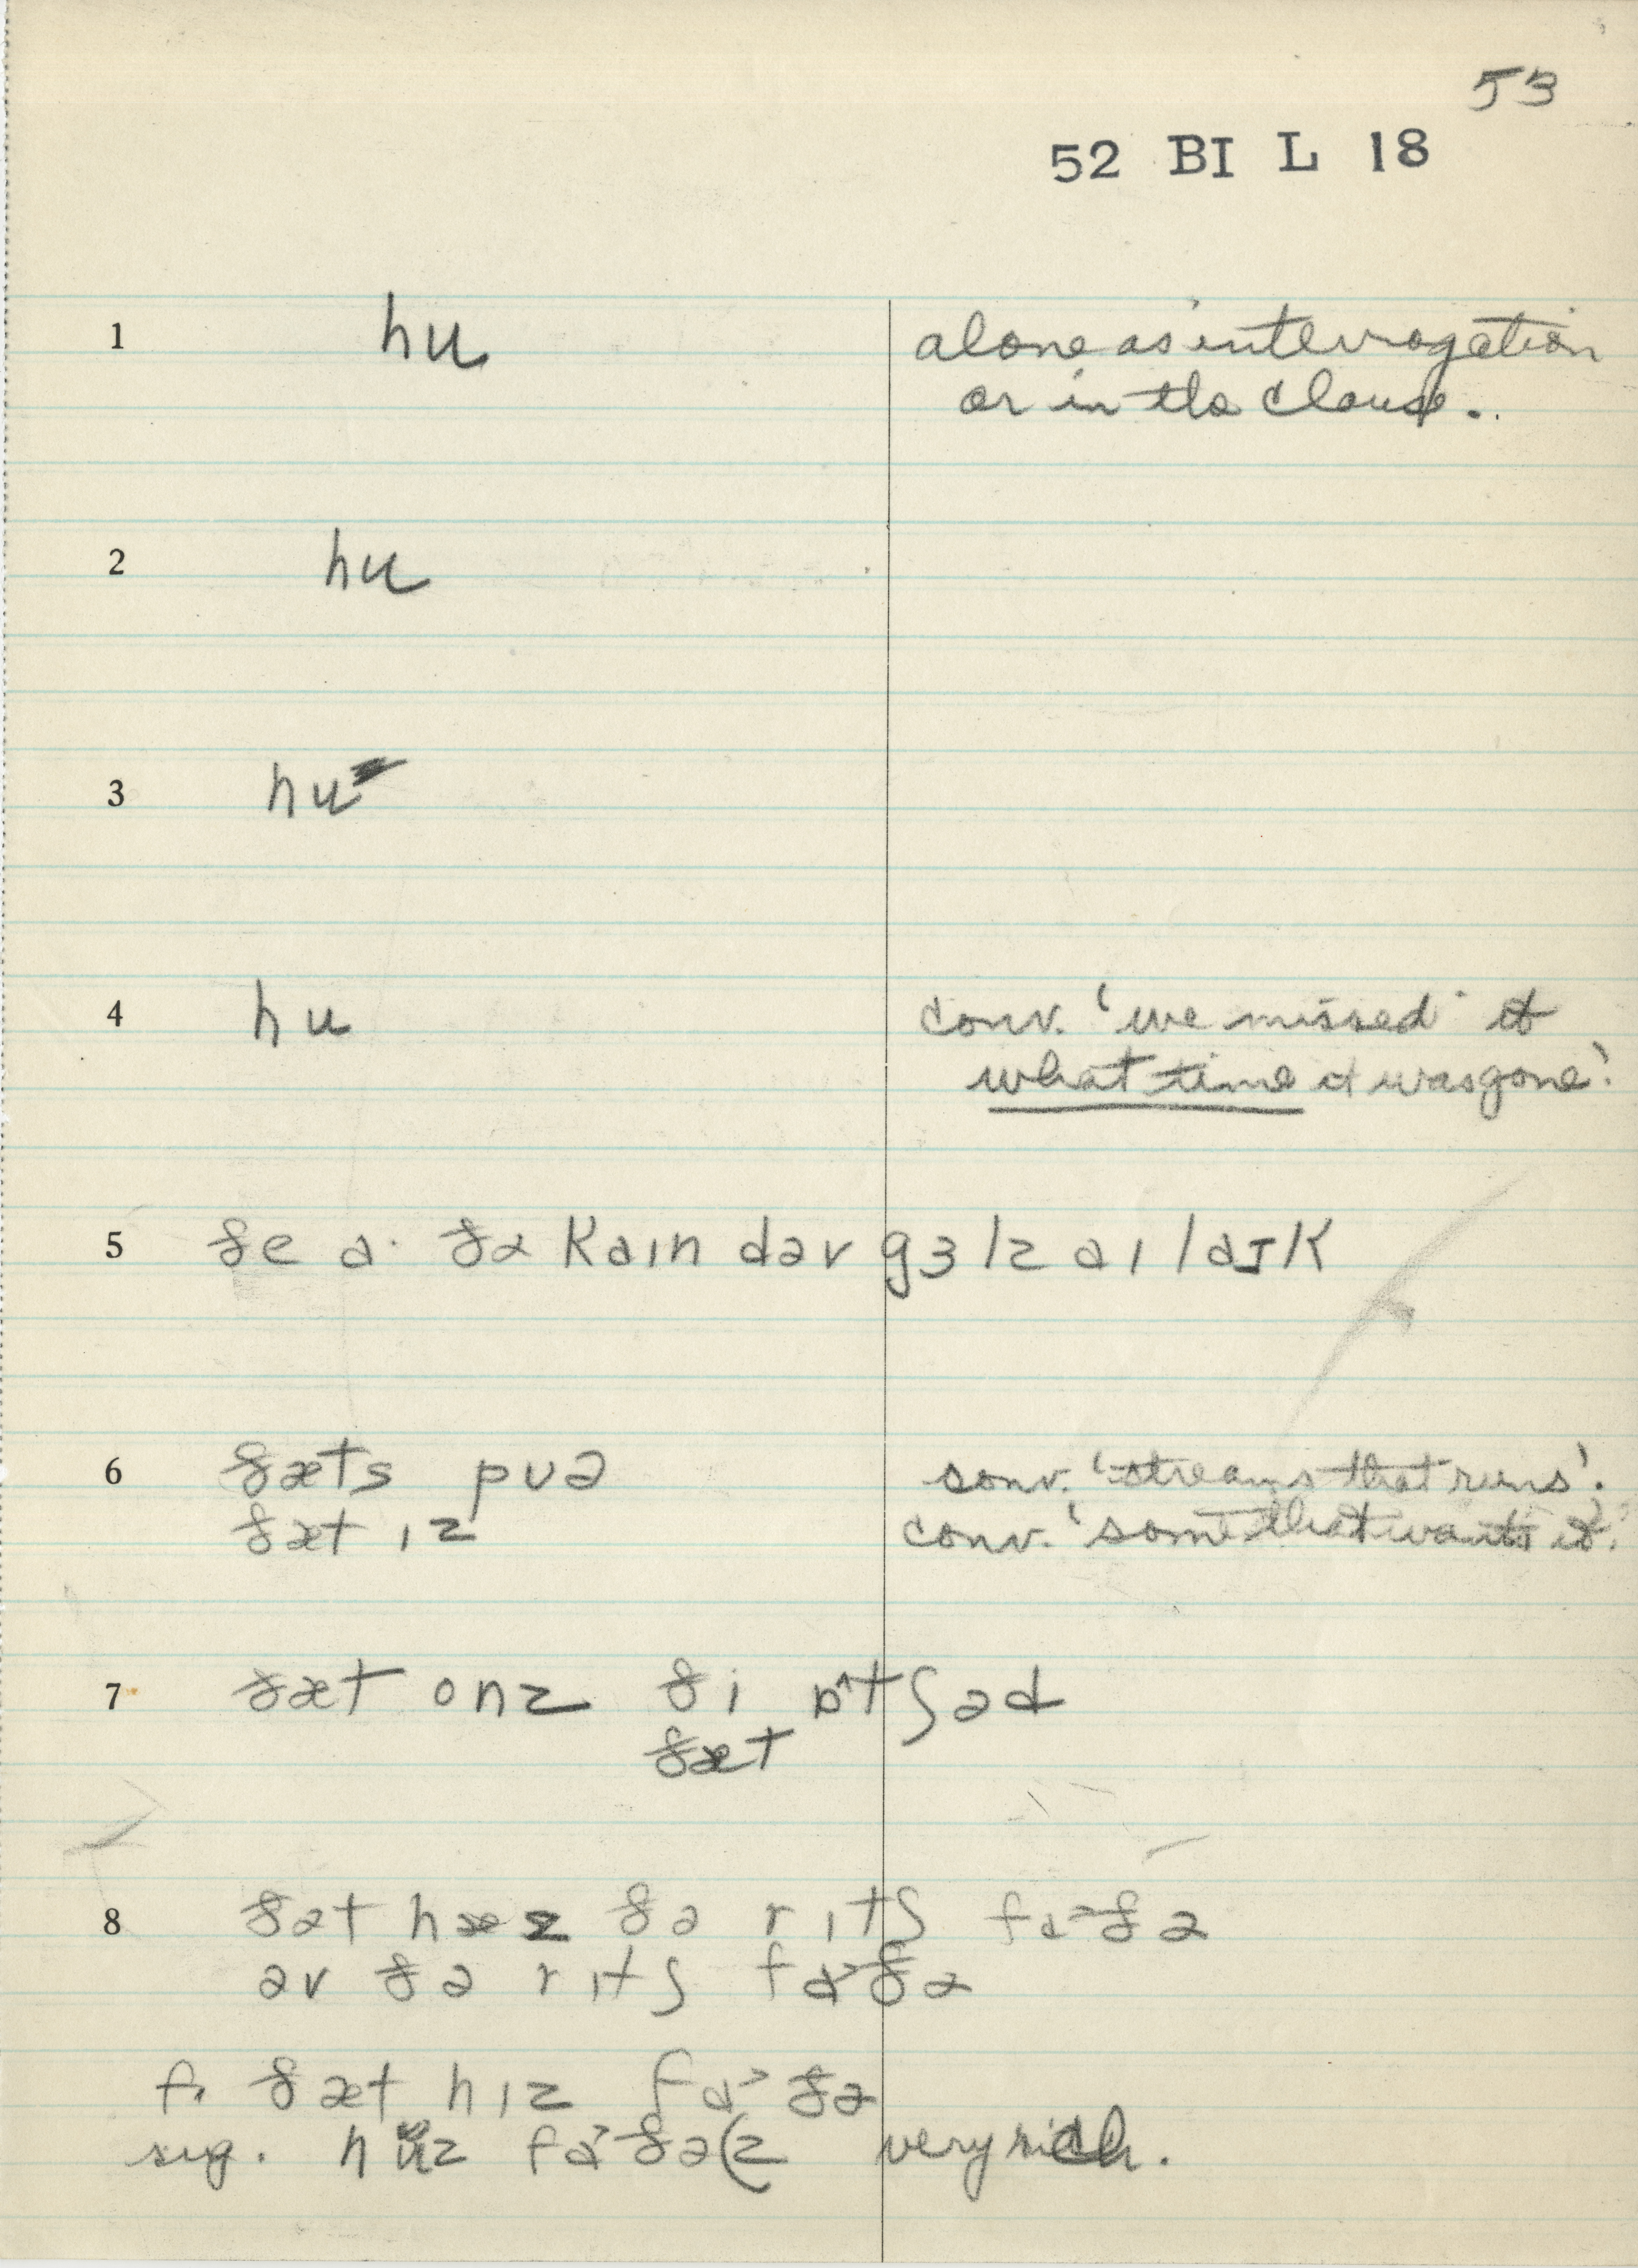 53
52 BI L 18
1 hu alone as interrogation
or in the clause..
2 hu
3 hu
4 hu conv. 'we missed it
what time it was gone'.
5 ðe a· ðə kaɪn dəv gɜlz aɪ laɪk
6 ðæts puə conv. 'streams that runs'.
ðæt ɪz conv. 'some that wants it'.
7 ðæt onz ði ɒtʃəd
ðæt
8 ðət hæz ðə rɪtʃ fɑ˃ðə
əv ðə rɪtʃ fɑ˃ðə
f. ðæt hɪz fɑ˃ðə
sug. huz fɑ˃ðə(z very rich.